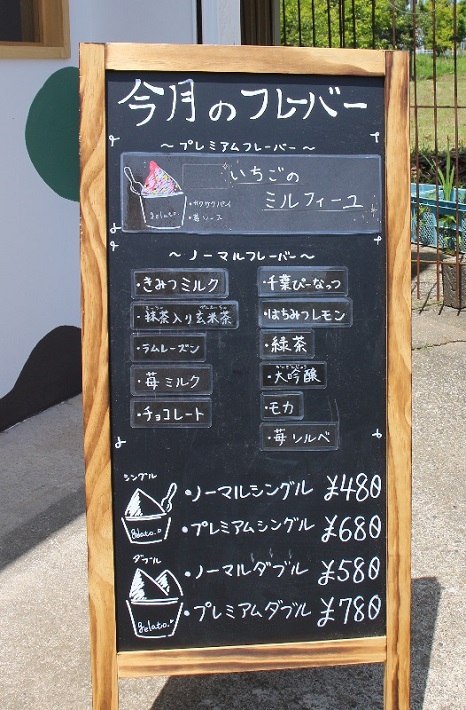 今月のフレーバー
〜プレミアムフレーバー〜
いちごの
ミルフィーユ
・サクサクパイ
・苺ソース
gelato
〜ノーマルフレーバー〜
・きみつミルク
・抹茶入り玄米茶
・ラムレーズン
・苺ミルク
・チョコレート
・千葉ぴーなっつ
・はちみつレモン
・緑茶
・大吟醸
・モカ
・苺ソルベ
シングル
gelato.
・ノーマルシングル ¥480
・プレミアムシングル ¥680
ダブル
gelato.
・ノーマルダブル ¥580
・プレミアムダブル ¥780